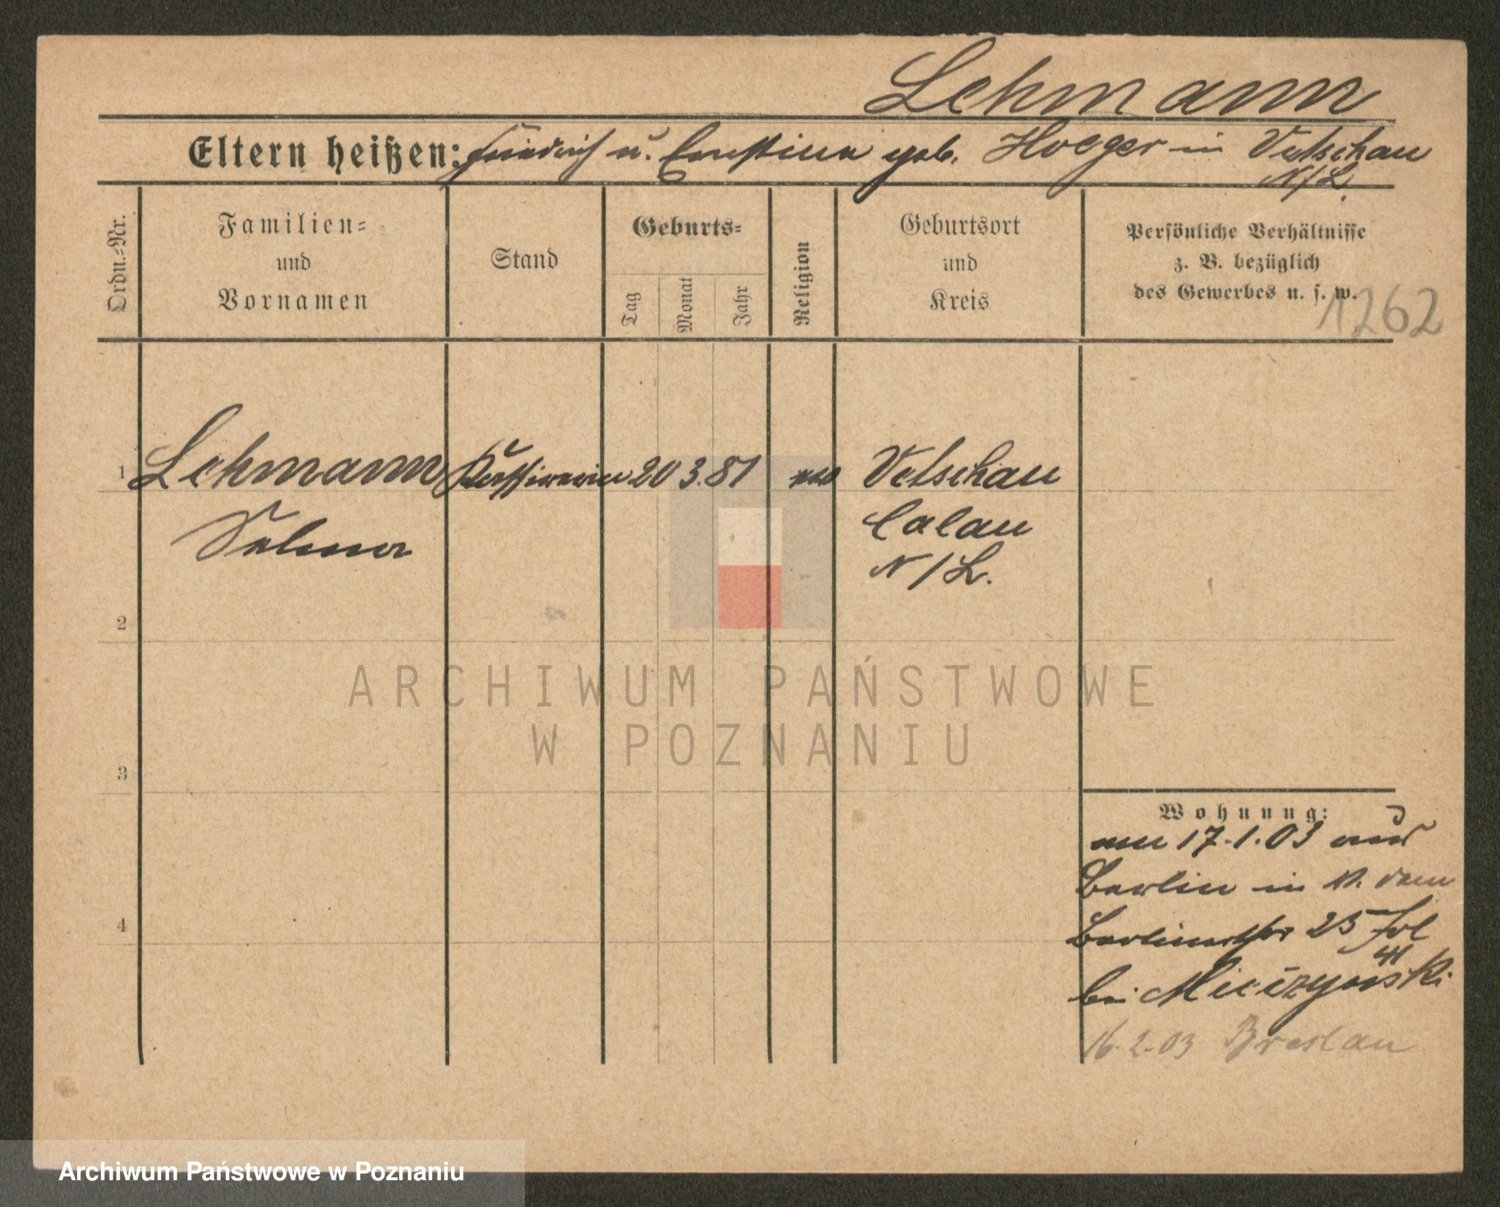 Lehmann
Eltern heißen: Friedrich u. Ernstine geb. Hoeger in Vetschau
N/L.
Ordn.-Nr.
Familien-
und
Vornamen
Stand
Geburts-
Tag
Monat
Jahr
Religion
Geburtsort
und
Kreis
Persönliche Verhältnisse
z. B. bezüglich
des Gewerbes u. s. w.
1262
1 Lehmann Kassirerin 20 3. 81 Vetschau
Selma Calau
N/L.
2
ARCHIWUM PAŃSTWOWE
W POZNANIU
3
Wohnung:
17.1.03 aus
Berlin in
Berlinerstr 25
bei
4
16.2.03 Breslau
Archiwum Państwowe w Poznaniu